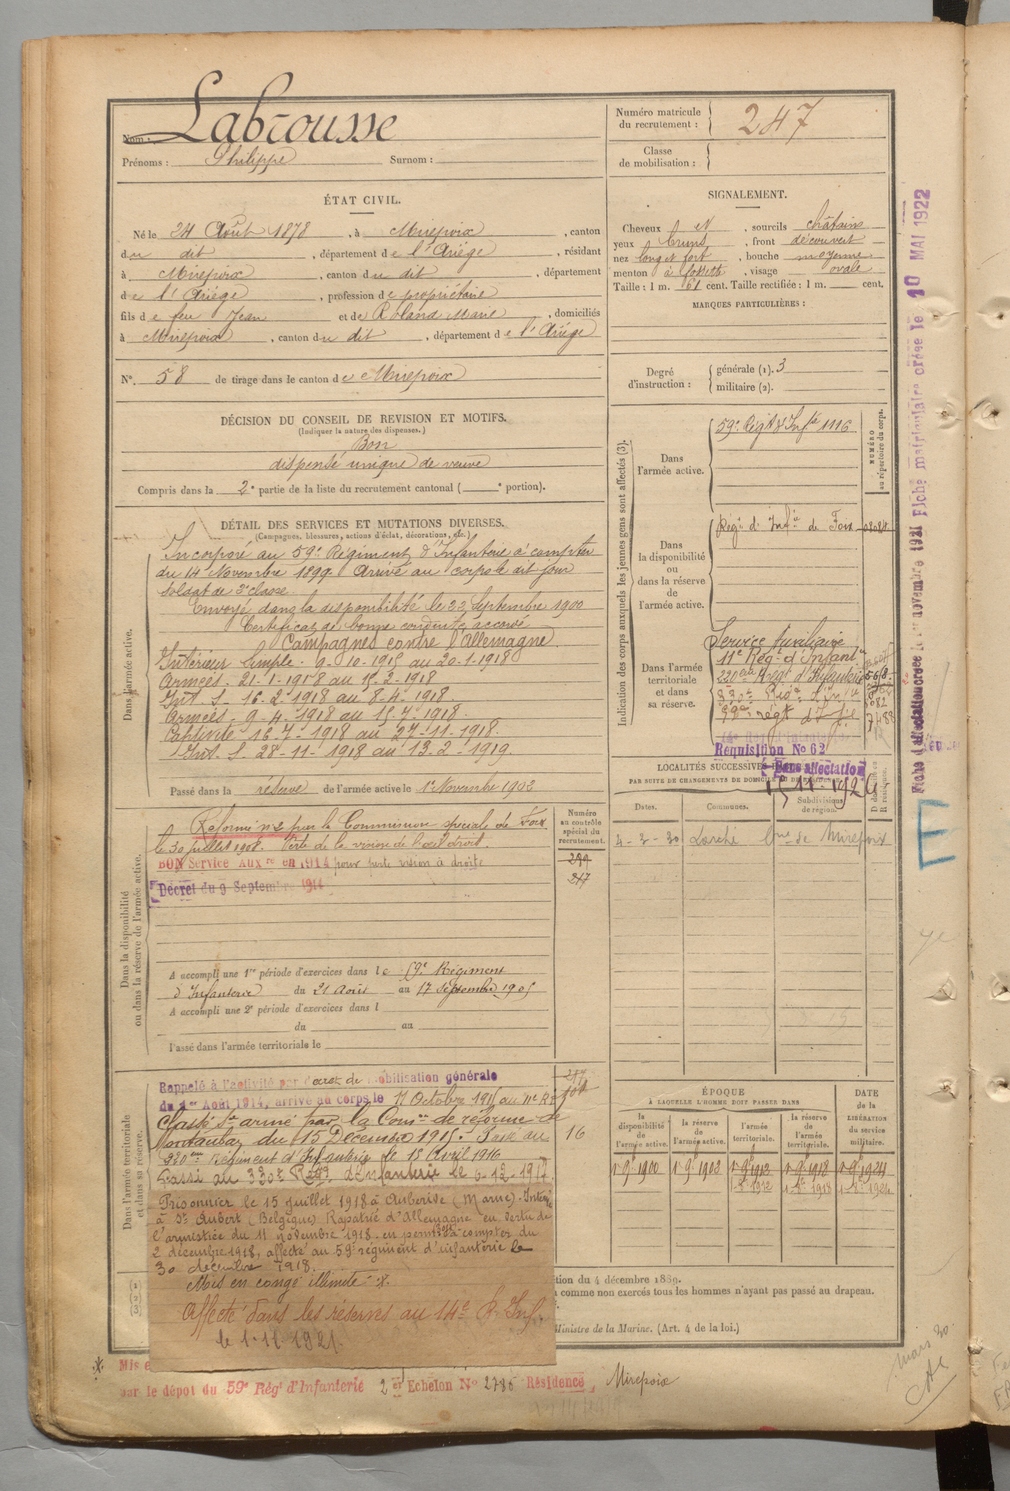 Nom : Labrousse
Prénoms : Philippe Surnom :
Numéro matricule du recrutement : 247
Classe de mobilisation :
ÉTAT CIVIL.
Né le 24 Août 1878, à Mirepoix, canton
du dit, département de l'Ariège, résidant
à Mirepoix, canton du dit, département
de l'Ariège, profession de propriétaire
fils de feu Jean et de Roland Marie, domiciliés
à Mirepoix, canton du dit, département de l'Ariège
N°. 58 de tirage dans le canton de Mirepoix
SIGNALEMENT.
Cheveux et, sourcils châtains
yeux bruns, front découvert
nez long et fort, bouche moyenne
menton à fossette, visage ovale
Taille : 1 m. 61 cent. Taille rectifiée : 1 m. cent.
MARQUES PARTICULIÈRES :
Degré d'instruction : générale (1). 3
militaire (2).
DÉCISION DU CONSEIL DE REVISION ET MOTIFS.
(Indiquer la nature des dispenses.)
Bon
dispensé unique de veuve
Compris dans la 2e partie de la liste du recrutement cantonal ( e portion).
DÉTAIL DES SERVICES ET MUTATIONS DIVERSES.
(Campagnes, blessures, actions d'éclat, décorations, etc.)
Dans l'armée active.
Incorporé au 59e Régiment d'Infanterie à compter
du 14 Novembre 1899. Arrivé au corps le dit jour
Soldat de 2e classe
Envoyé dans la disponibilité le 22 Septembre 1900
Certificat de bonne conduite accordé
Campagnes contre l'Allemagne
Intérieur Simple - 9-10-1915 au 20-1-1918
Armées - 21-1-1918 au 15-2-1918
Int. S - 16-2-1918 au 8-4-1918.
Armées - 9-4-1918 au 15-7-1918.
Captivité 16-7-1918 au 27-11-1918.
Int. S 28-11-1918 au 13-2-1919.
Passé dans la réserve de l'armée active le 1er Novembre 1902
Indication des corps auxquels les jeunes gens sont affectés (3).
NUMÉRO au répertoire du corps.
Dans l'armée active.
59e Régt d'Infie 1116
Dans la disponibilité ou dans la réserve de l'armée active.
Régt d'Infie de Foix
Dans l'armée territoriale et dans sa réserve.
Service Auxiliaire
11e Régt d'Infant
220ème Régt d'Infanterie
330e Régt d'Infie
Réquisition No 62
Sans affectation
15-11-1926
LOCALITÉS SUCCESSIVES
PAR SUITE DE CHANGEMENTS DE DOMICILE
Dates. Communes. Subdivisions de région.
4-2-30 Larché Bne de Mirepoix
Dans la disponibilité ou dans la réserve de l'armée active.
Numéro au contrôle spécial du recrutement.
Réformé n°2 par la Commission spéciale de Foix
le 30 juillet 1908. Perte de la vision de l'œil droit.
BON Service Auxre en 1914 pour perte vision à droite
Décret du 9 Septembre 1914
247
A accompli une 1re période d'exercices dans le 59e Régiment
d'Infanterie du 21 Août au 17 Septembre 1905
A accompli une 2e période d'exercices dans l
du au
Passé dans l'armée territoriale le
Dans l'armée territoriale et dans sa réserve.
Rappelé à l'activité par décret de mobilisation générale
du 1er Août 1914, arrivé au corps le 17 Octobre 1915 au 11e Rt
Classé Sce armé par la Comon de réforme de
Montauban du 15 Décembre 1915. Passé au
220ème Régiment d'Infanterie le 18 Avril 1916
Passé au 330e Régt d'infanterie le 6-12-1917
16
Prisonnier le 15 juillet 1918 à Auberive (Marne). Interné
à St Aubert (Belgique) Rapatrié d'Allemagne en vertu de
l'armistice du 11 novembre 1918. en permon à compter du
2 décembre 1918, affecté au 59e régiment d'infanterie le
30 décembre 1918.
Mis en congé illimité *.
Affecté dans les réserves au 14e R. Inf.
le 1-11-1921.
ÉPOQUE
À LAQUELLE L'HOMME DOIT PASSER DANS
la disponibilité de l'armée active. la réserve de l'armée active. l'armée territoriale. la réserve de l'armée territoriale.
DATE de la LIBÉRATION du service militaire.
1er 9bre 1900 1er 9bre 1902 1er 9bre 1912 1er 9bre 1918 1er 9bre 1924
tion du 4 décembre 1889.
comme non exercés tous les hommes n'ayant pas passé au drapeau.
Ministre de la Marine. (Art. 4 de la loi.)
* Mis e
par le dépôt du 59e Régt d'Infanterie 2er Echelon No 2786 Résidence, Mirepoix
Fiche matriculaire créée le 10 MAI 1922
mars 30